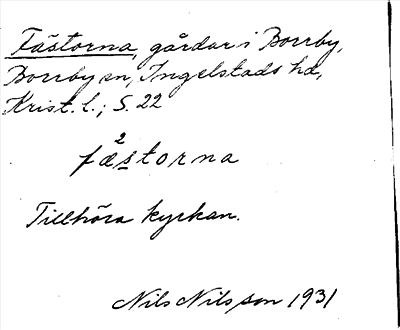 Fästorna, gårdar i Borrby,
Borrby sn, Ingelstads hd,
Krist. l.; S. 22
2
fæstorna
Tillhöra kyrkan.
Nils Nilsson 1931